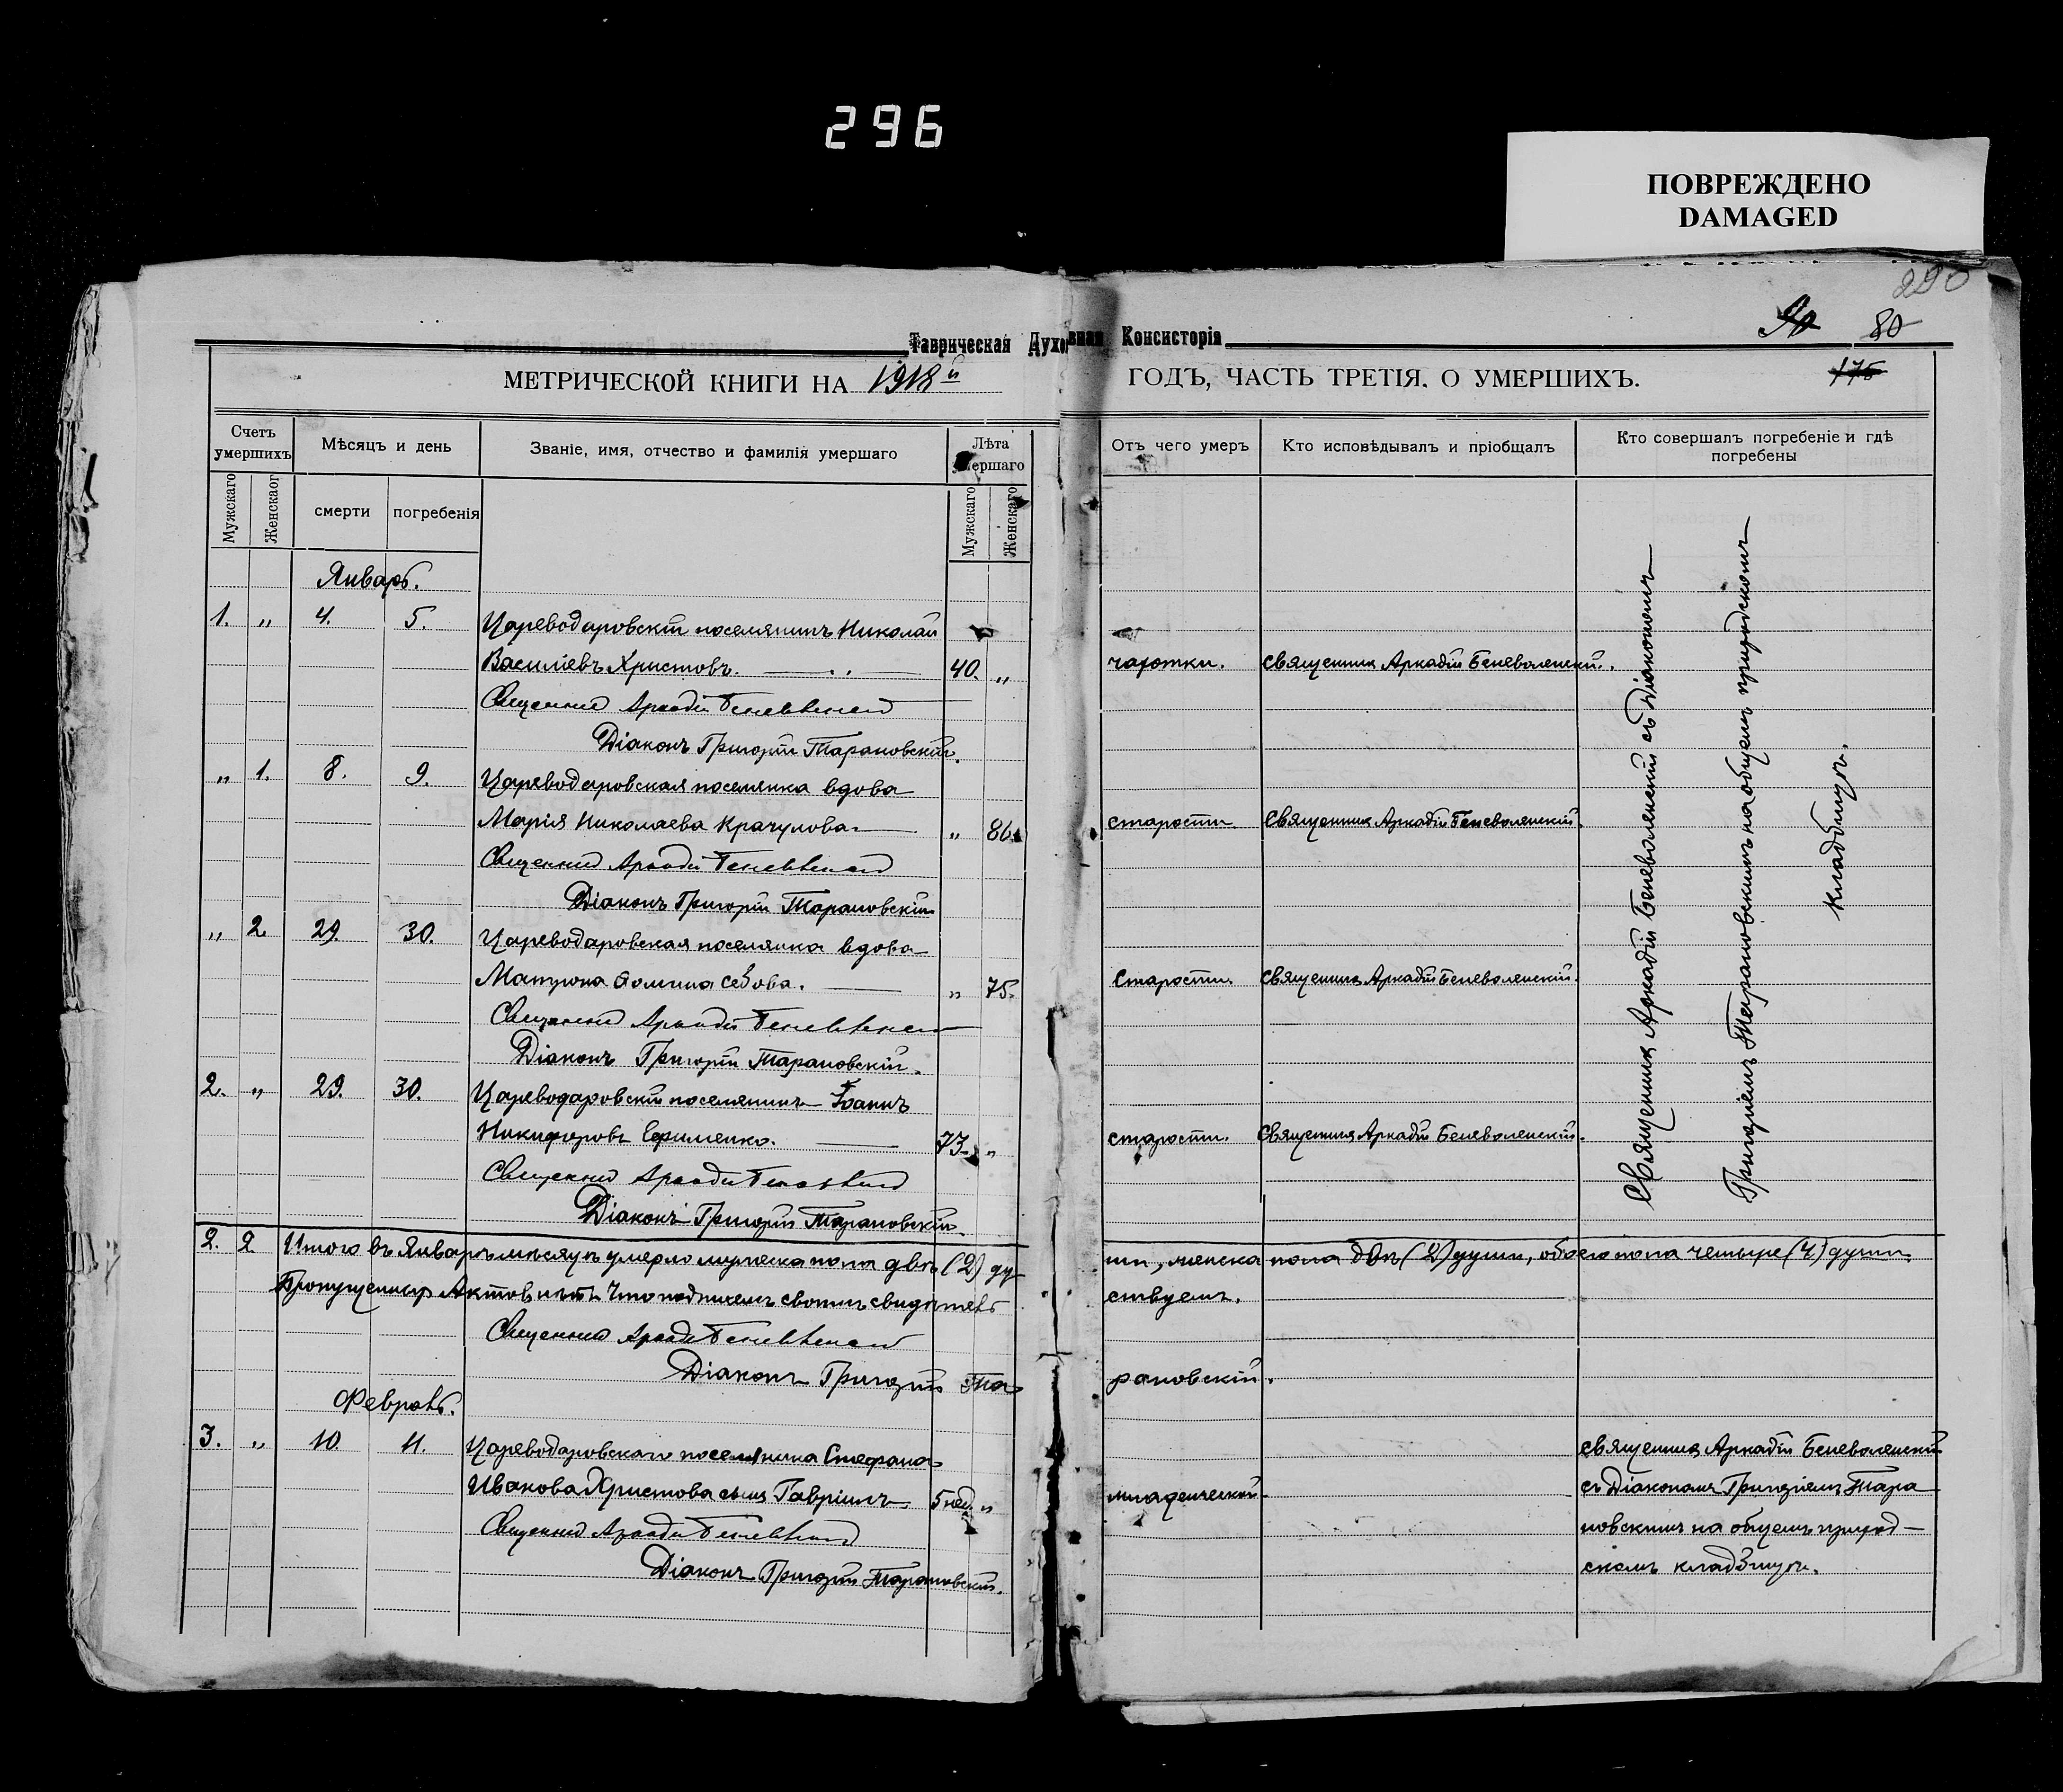 296
ПОВРЕЖДЕНО
DAMAGED
290
80
175
Таврическая Духовная Консисторія
МЕТРИЧЕСКОЙ КНИГИ НА 1918й ГОДЪ, ЧАСТЬ ТРЕТІЯ. О УМЕРШИХЪ.
Счетъ умершихъ
Мужскаго
Женскаог
Мѣсяцъ и день
смерти
погребенія
Званіе, имя, отчество и фамилія умершаго
Лѣта умершаго
Мужскаго
Женскаго
Отъ чего умеръ
Кто исповѣдывалъ и пріобщалъ
Кто совершалъ погребеніе и гдѣ погребены
Январь.
1. „ 4. 5. Цареводаровскій поселянинъ Николай
Василіевъ Христовъ. 40. „ чахотки. Священникъ Аркадій Беневоленскій.
Священникъ Аркадій Беневоленскій
Діаконъ Григорій Тарановскій.
„ 1. 8. 9. Цареводаровская поселянка вдова
Марія Николаева Крачунова „ 86. старости Священникъ Аркадій Беневоленскій.
Священникъ Аркадій Беневоленскій
Діаконъ Григорій Тарановскій
„ 2. 29. 30. Цареводаровская поселянка вдова
Матрона Фомина „ 75. Старости. Священникъ Аркадій Беневоленскій.
Священникъ Аркадій Беневоленскій
Діаконъ Григорій Тарановскій.
2. „ 29. 30. Цареводаровскій поселянинъ Іоаннъ
Никифоровъ Ефименко. 73. „ старости. Священникъ Аркадій Беневоленскій.
Священникъ Аркадій Беневоленскій
Діаконъ Григорій Тарановскій
Священникъ Аркадій Беневоленскій съ Діакономъ
Григоріемъ Тарановскимъ на общемъ приходскомъ
кладбищѣ.
2. 2 Итого въ Январѣ мѣсяцѣ умерло мужеска пола двѣ (2) души, женска пола двѣ (2) души, обоего пола четыре (4) души.
Пропущенныхъ Актовъ нѣтъ Что подписемъ своимъ свидѣтельствуемъ.
Священникъ Аркадій Беневоленскій
Діаконъ Григорій Тарановскій.
Февраль.
3. „ 10. 11. Цареводаровскаго поселянина Стефана
Иванова Христова сынъ Гавріилъ 5 нед. „ младенческой
Священникъ Аркадій Беневоленскій
Діаконъ Григорій Тарановскій.
Священникъ Аркадій Беневоленскій
съ Діакономъ Григоріемъ Тара
новскимъ на общемъ приход-
скомъ кладбищѣ.